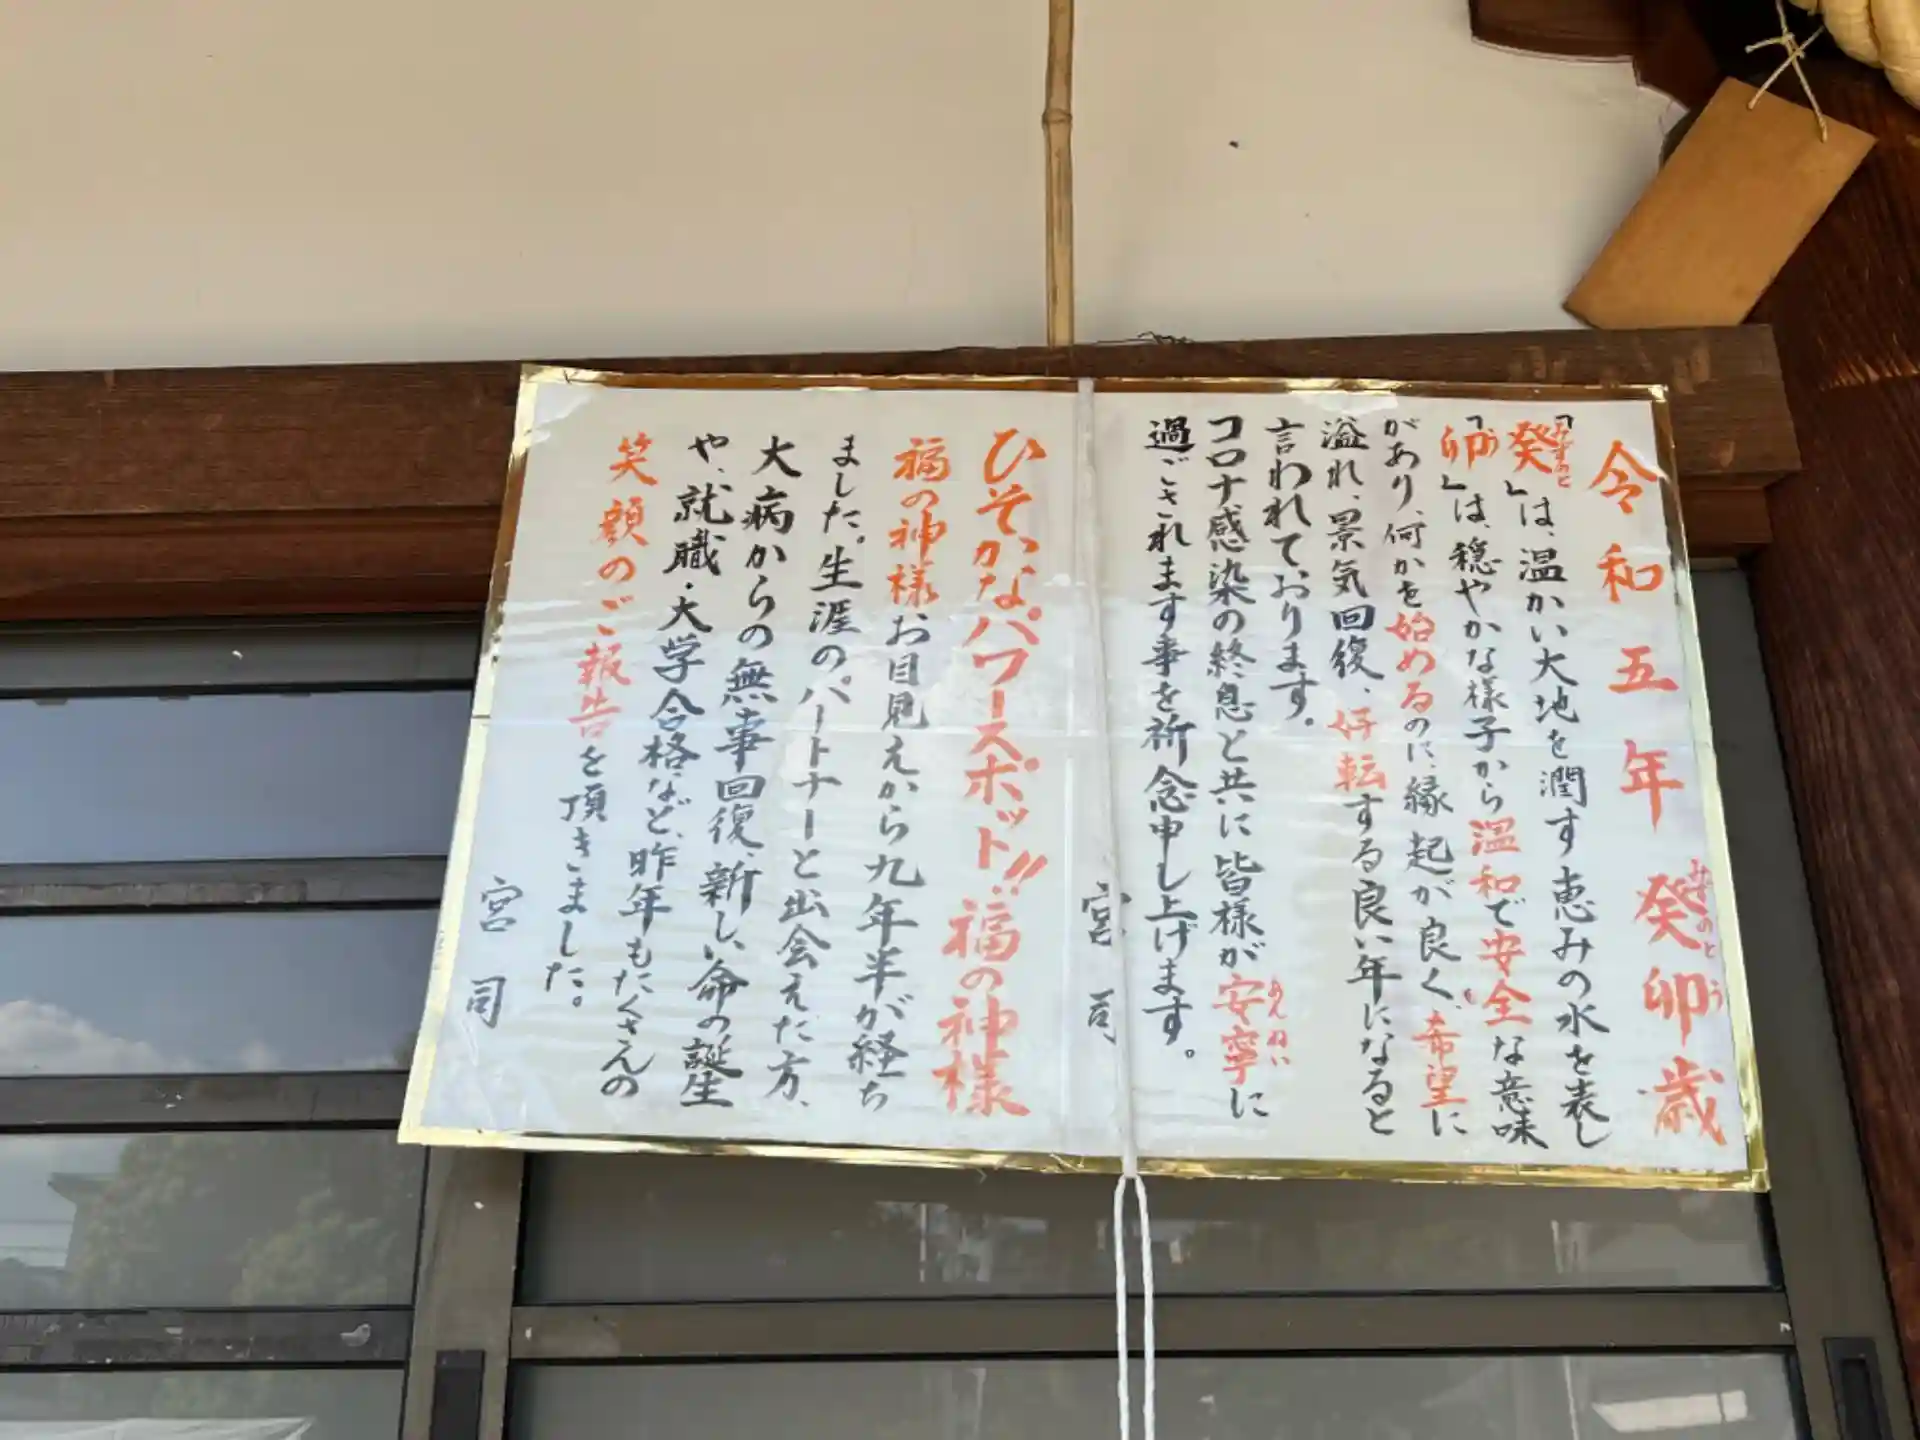 令和五年癸卯歳
みずのとう
「癸」は、温かい大地を潤す恵みの水を表し
みずのと
「卯」は、穏やかな様子から温和で安全な意味
う
があり、何かを始めるのに縁起が良く、希望に
も
溢れ、景気回復、好転する良い年になると
言われております。
コロナ感染の終息と共に皆様が安寧に
あんねい
過ごされます事を祈念申し上げます。
宮司
ひそかなパワースポット!!福の神様
福の神様お目見えから九年半が経ち
ました。生涯のパートナーと出会えた方、
大病からの無事回復、新しい命の誕生
や、就職・大学合格など、昨年もたくさんの
笑顔のご報告を頂きました。
宮司